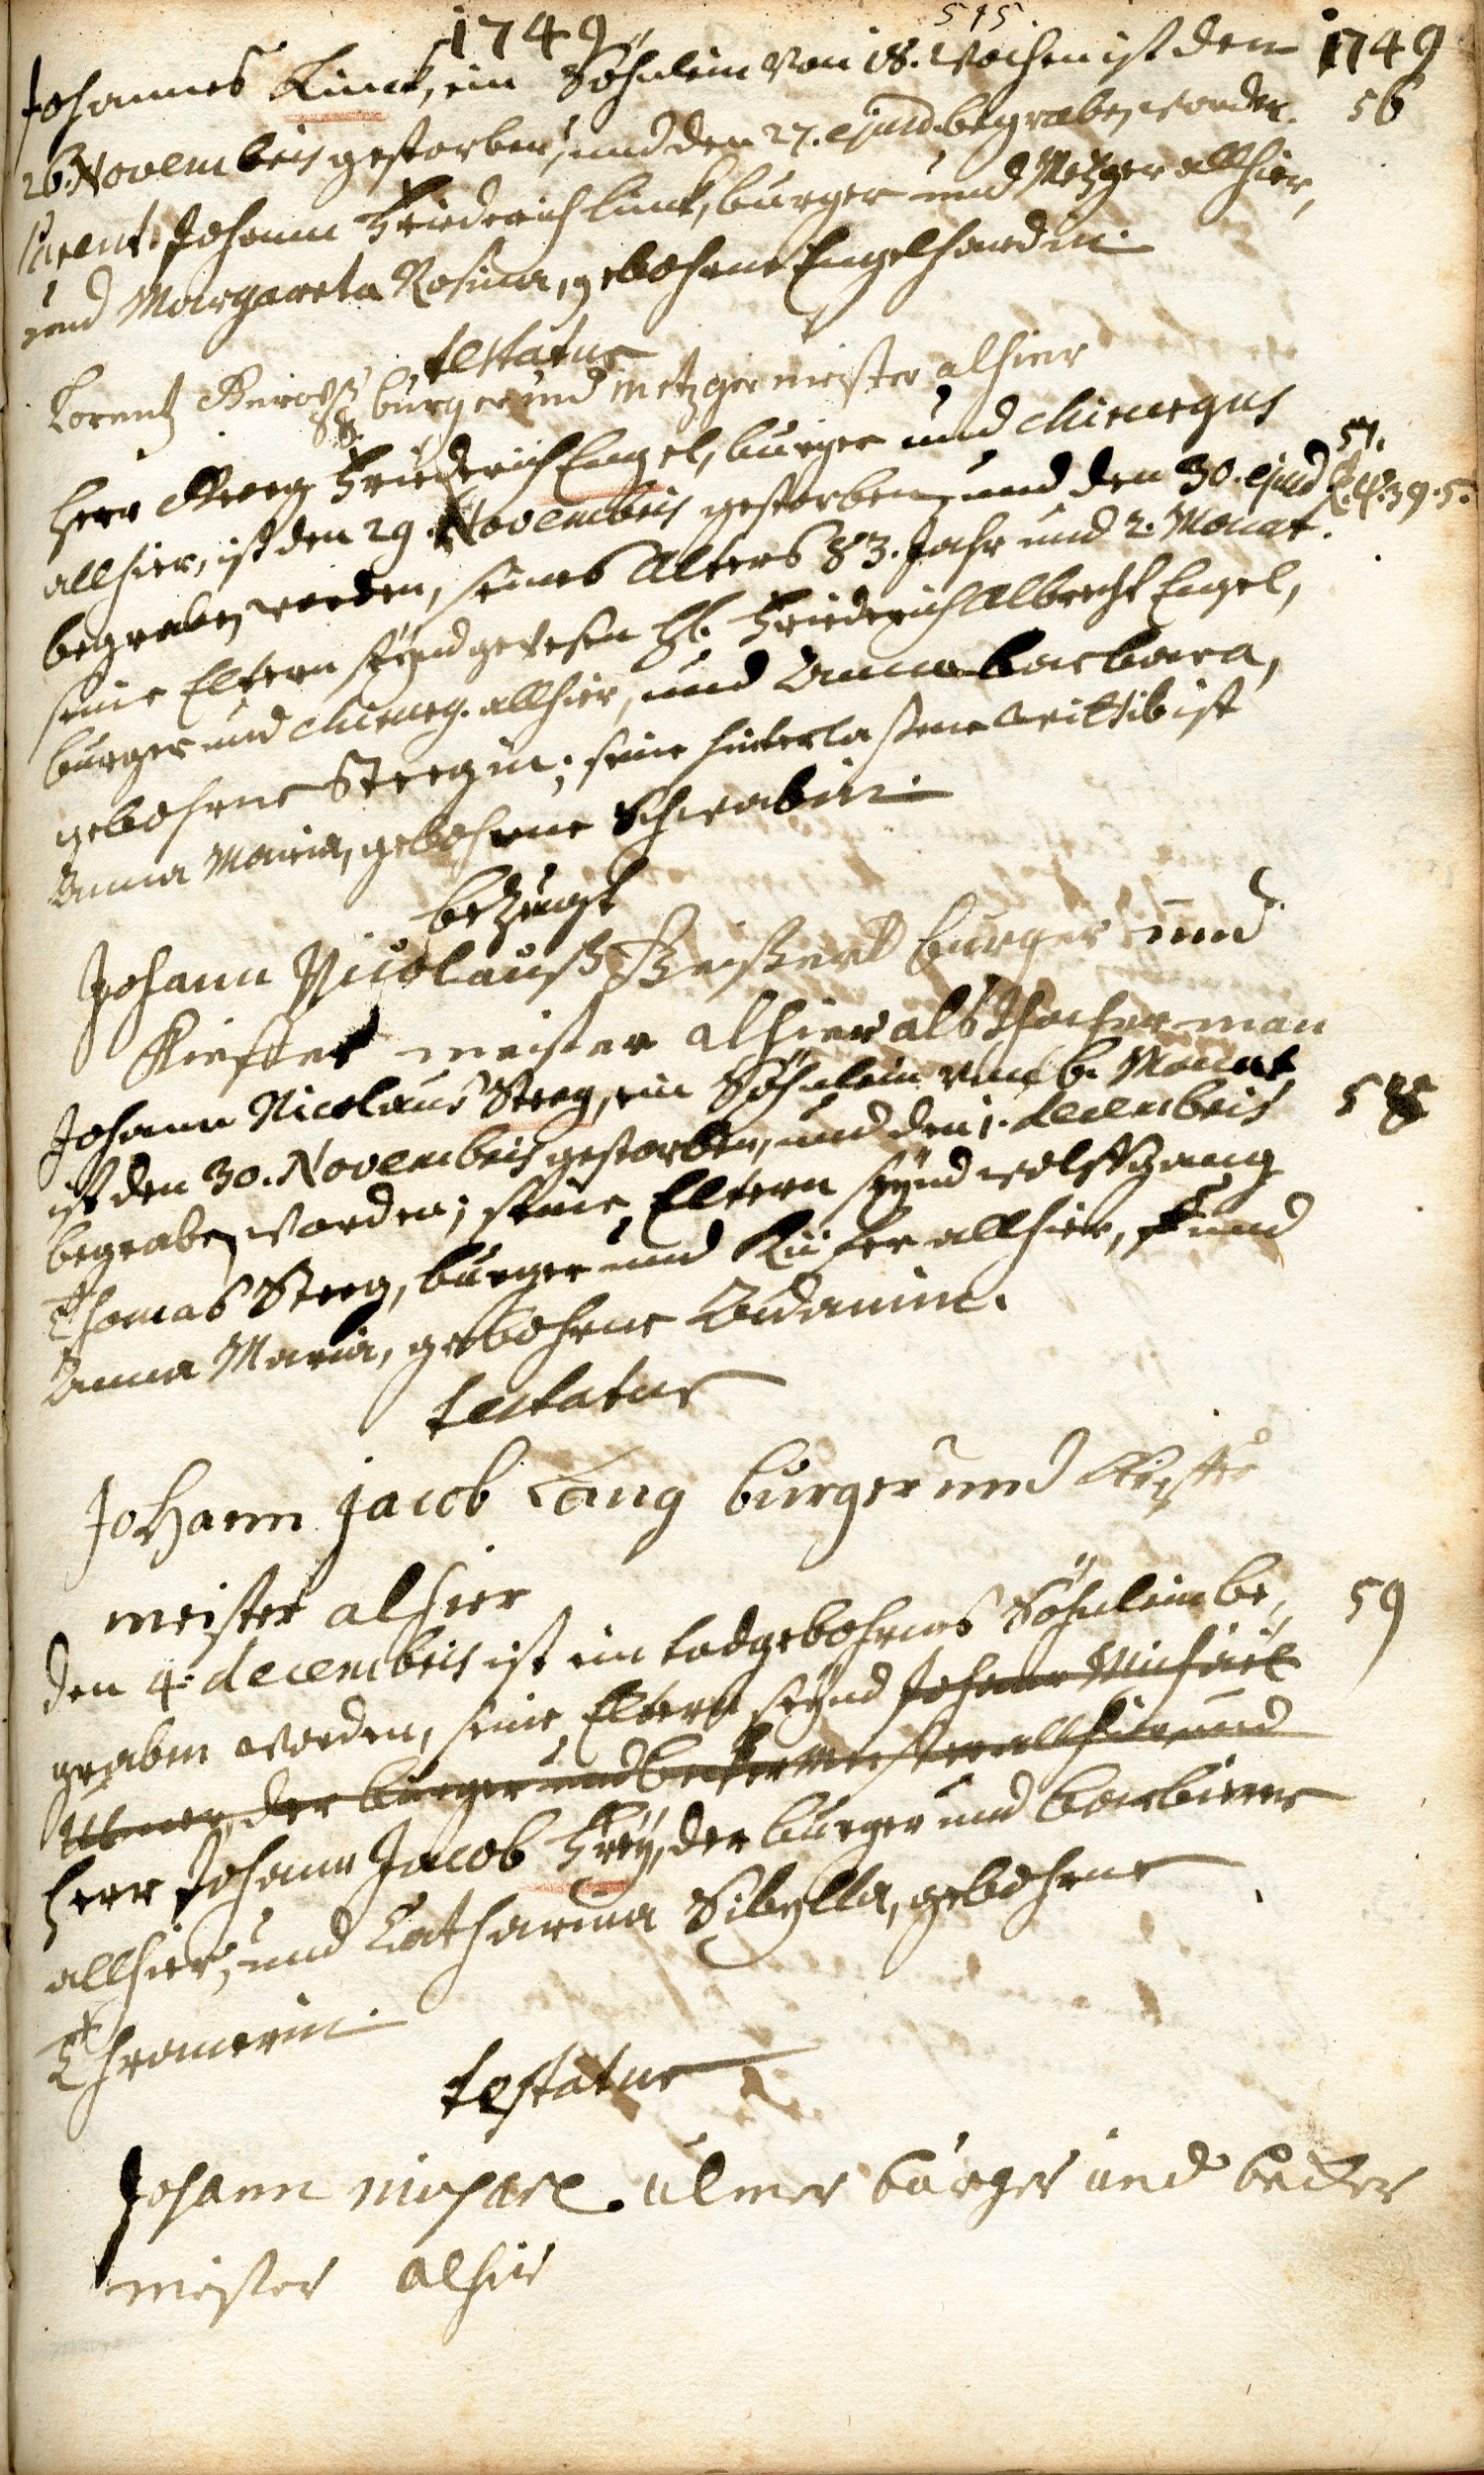 1749 545
Johannes Linck, ein Söhnlein von 18. Wochen ist den 1749
26. Novembris gestorben, und den 27. ejusd begraben worden. 56
Parent. Johann Friederich Linck, burger und Metzger allhier,
und Margareta Rosina, gebohrne Engelhardin.
testatur
Lorentz burger und metzger meister alhier
Herr Georg Friederich Engel, burger und chirurgus 57.
allhier, ist den 29. Novembris gestorben, und den 30. ejusd
begraben worden, seines Alters 83. Jahr und 2. Monat.
seine Eltern seynd gewesen H. Friederich Albrecht Engel,
burger und chirurg. allhier, und Anna barbara,
gebohrne Steegin; seine hinterlaßene Wittib ist
Anna Maria, gebohrne Schwabin.
bezeugt
Johann Nicolauß burger und
Kieffer meister alhier als man
Johann Nicolaus Steeg, ein Söhnlein von 6. Monat
ist den 30. Novembris gestorben, und den 1. decembris 58
begraben worden; seine Eltern seynd Wolffgang
Thomas Steeg, burger und Küfer allhier, und
Anna Maria, gebohrne Adamin.
testatur
Johann jacob Lang burger und Kieffer
meister alhier
den 4. decembris ist ein todgebohrnes Söhnlein be- 59
graben worden, seine Eltern seynd Johann Michael
Ulmer, der burger und becker meister allhier und
Herr Johann Jacob Frey, der burger und barbierer
allhier, und Catharina Sibylla, gebohrne
Thramerin.
testatur
Johann michael ulmer burger und becker
meister alhir